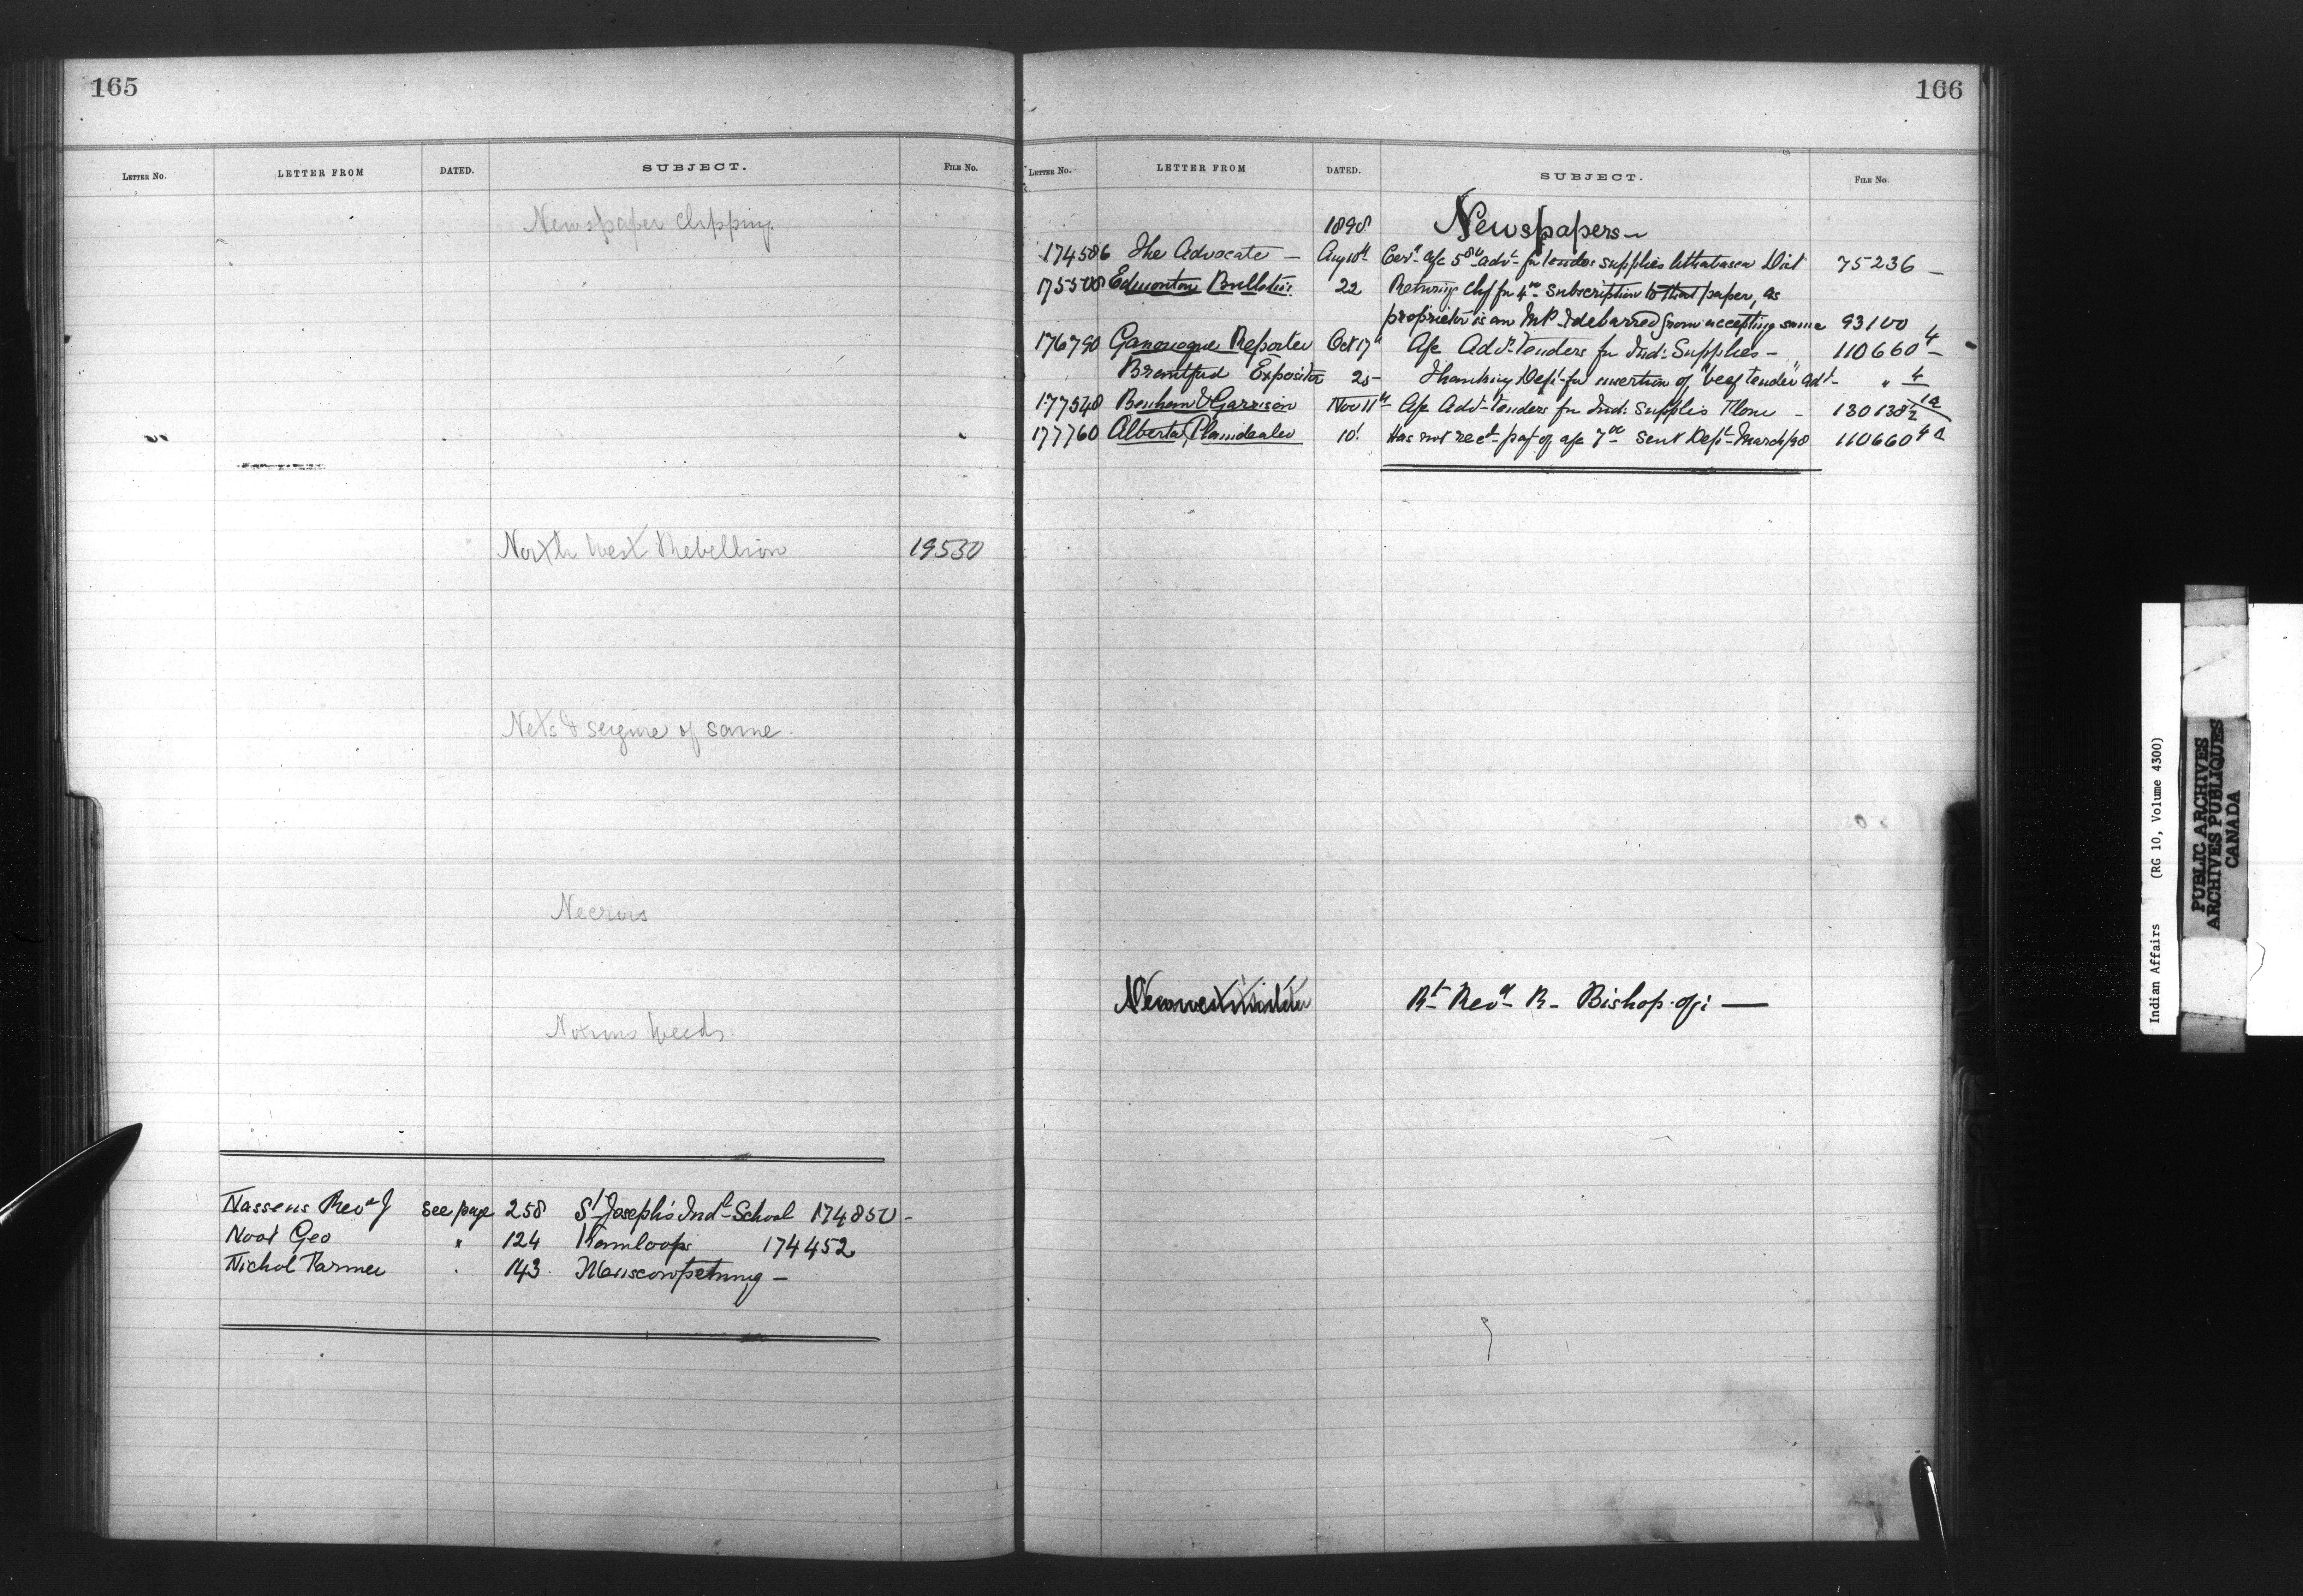 165
LETTER No. LETTER FROM DATED. SUBJECT. FILE No.
Newspaper clipping.
North West Rebellion 19530
Nets & seizure of same.
Noxious Weeds
Nassens Revd J see page 258 St Joseph's Indl School 174850 -
Noot Geo " 124 Kamloops 174452
Nichol Farmer . 143 Muscowpetung -
166
LETTER No. LETTER FROM DATED. SUBJECT. FILE No.
1898 Newspapers
174586 The Advocate - Aug 10th a/c 5 advt for tender supplies Dist 75236 -
175508 Edmonton Bulletin 22 Returning chq for 4 00 subscription to that paper, as
proprietor is an M.P. & debarred from accepting same 93100
176790 Gananoque Reporter Oct 17 a/c Advt Tenders for Ind: Supplies - 110660 4
Brantford Expositor 25 Thanking Dept for insertion of "beef tender" adt - " 4
177548 Benham & Garrison Nov 11th a/c Advt Tenders for Ind: Supplies Flour - 130138
177760 Alberta Plaindealer 10 Has not recd pay of a/c 7 00 sent Dept March/98 110660 4 a
Newwestminster Rt Revd R - Bishop of: —
Indian Affairs (RG 10, Volume 4300)
PUBLIC ARCHIVES
ARCHIVES PUBLIQUES
CANADA